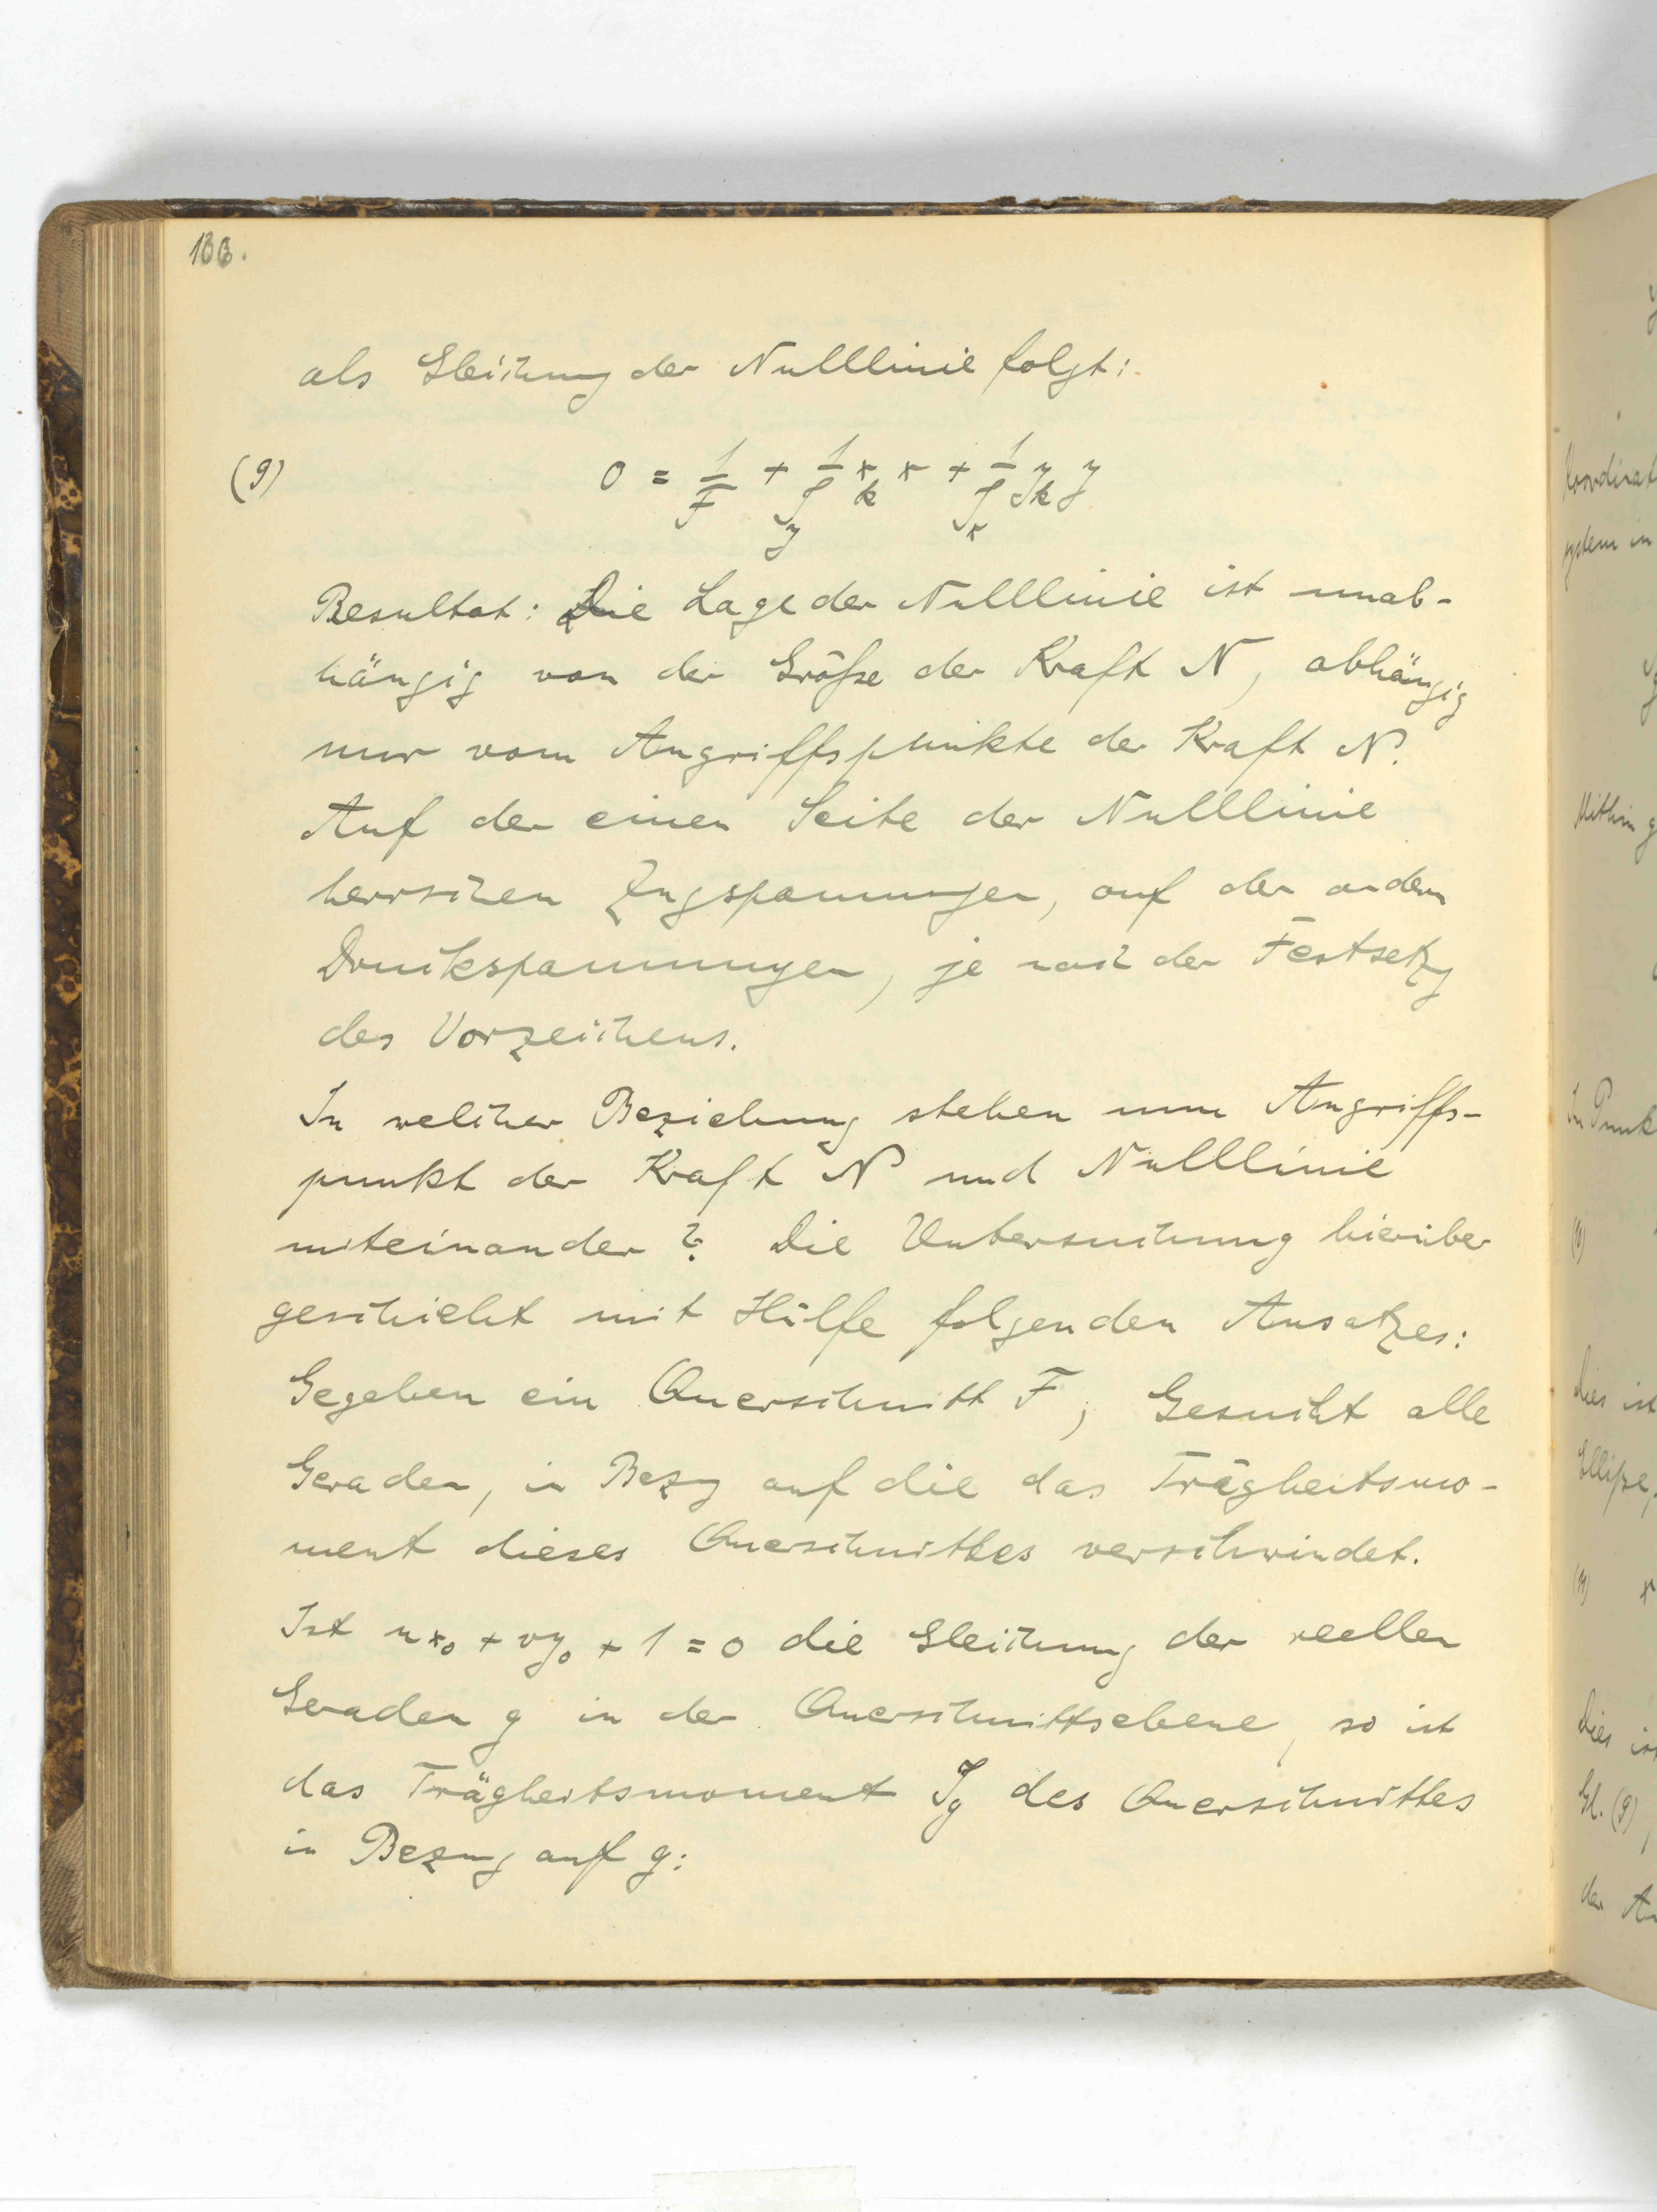 als Gleichung der Nulllinie folgt:
(9) 0 = 1/F + 1/J_y x_k x + 1/J_x y_k y
Resultat: Die Lage der Nulllinie ist unab-
hängig von der Größe der Kraft N, abhängig
nur vom Angriffspunkte der Kraft N.
Auf der einen Seite der Nulllinie
herrschen Zugspannungen, auf der andern
Druckspannungen, je nach der Festsetzg
des Vorzeichens.
In welcher Beziehung stehen nun Angriffs-
punkt der Kraft N und Nulllinie
miteinander? Die Untersuchung hierüber
geschieht mit Hülfe folgenden Ansatzes:
Gegeben ein Querschnitt F; Gesucht alle
Geraden, in Bezg auf die das Trägheitsmo-
ment dieses Querschnittes verschwindet.
Ist ux_0 + vy_0 + 1 = 0 die Gleichung der reellen
Geraden g in der Querschnittsebene, so ist
das Trägheitsmoment J_g des Querschnittes
in Bezug auf g:
Koordinat
system in
Mithin g
In Punk
dies ist
Ellipse,
Dies ist
Gl. (9),
der An